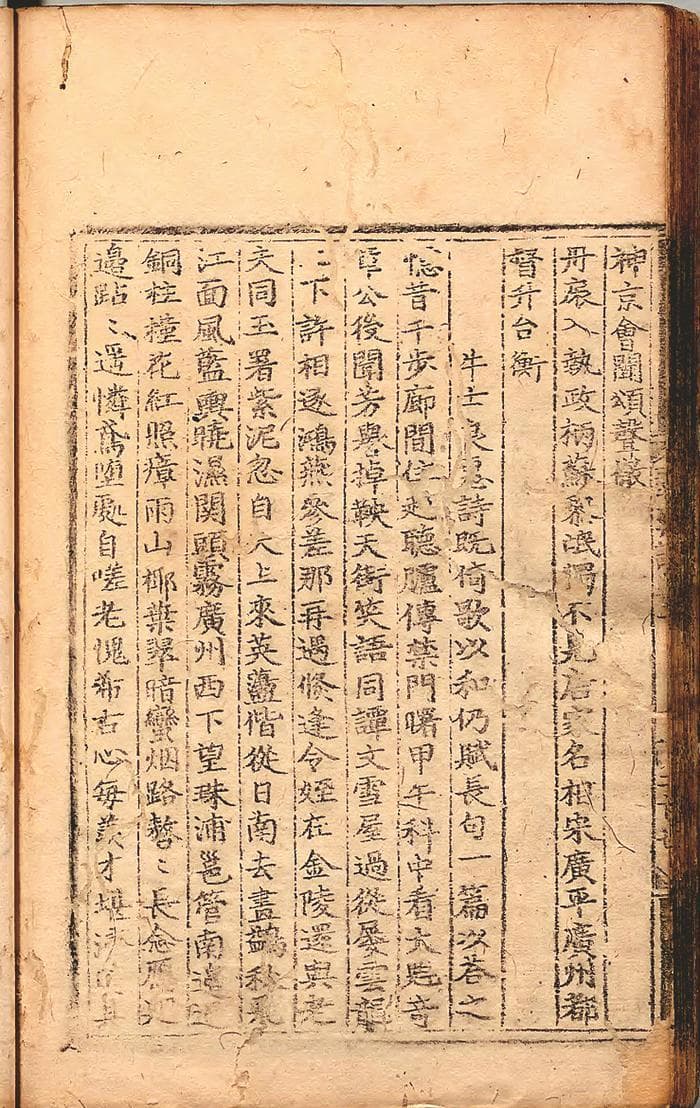 神京會聞頌聲懽
丹扆入執政柄蘇黎氓獨不見唐家名相宋廣平廣州都
督升台衡
牛士良惠詩既倚歌以和仍賦長句一篇以答之
憶昔千步廊間住起聽臚傳禁門曙甲午科中看大魁奇
章公後聞芳譽掉鞅天衢笑語同譚文雪屋過從屢雲龍
上下許相逐鴻燕參差那再遇倏逢令姪在金陵還與老
夫同玉署紫泥忽自天上來英蕩偕從日南去畫鷁秋飛
江面風藍輿曉濕関頭霧廣州西下望珠浦邕管南邊
銅柱撞花紅照瘴雨山椰葉翠暗蠻烟路慙〻長念
邊跕〻遥憐鳶墮處自嗟老愧希古心每羨才堪